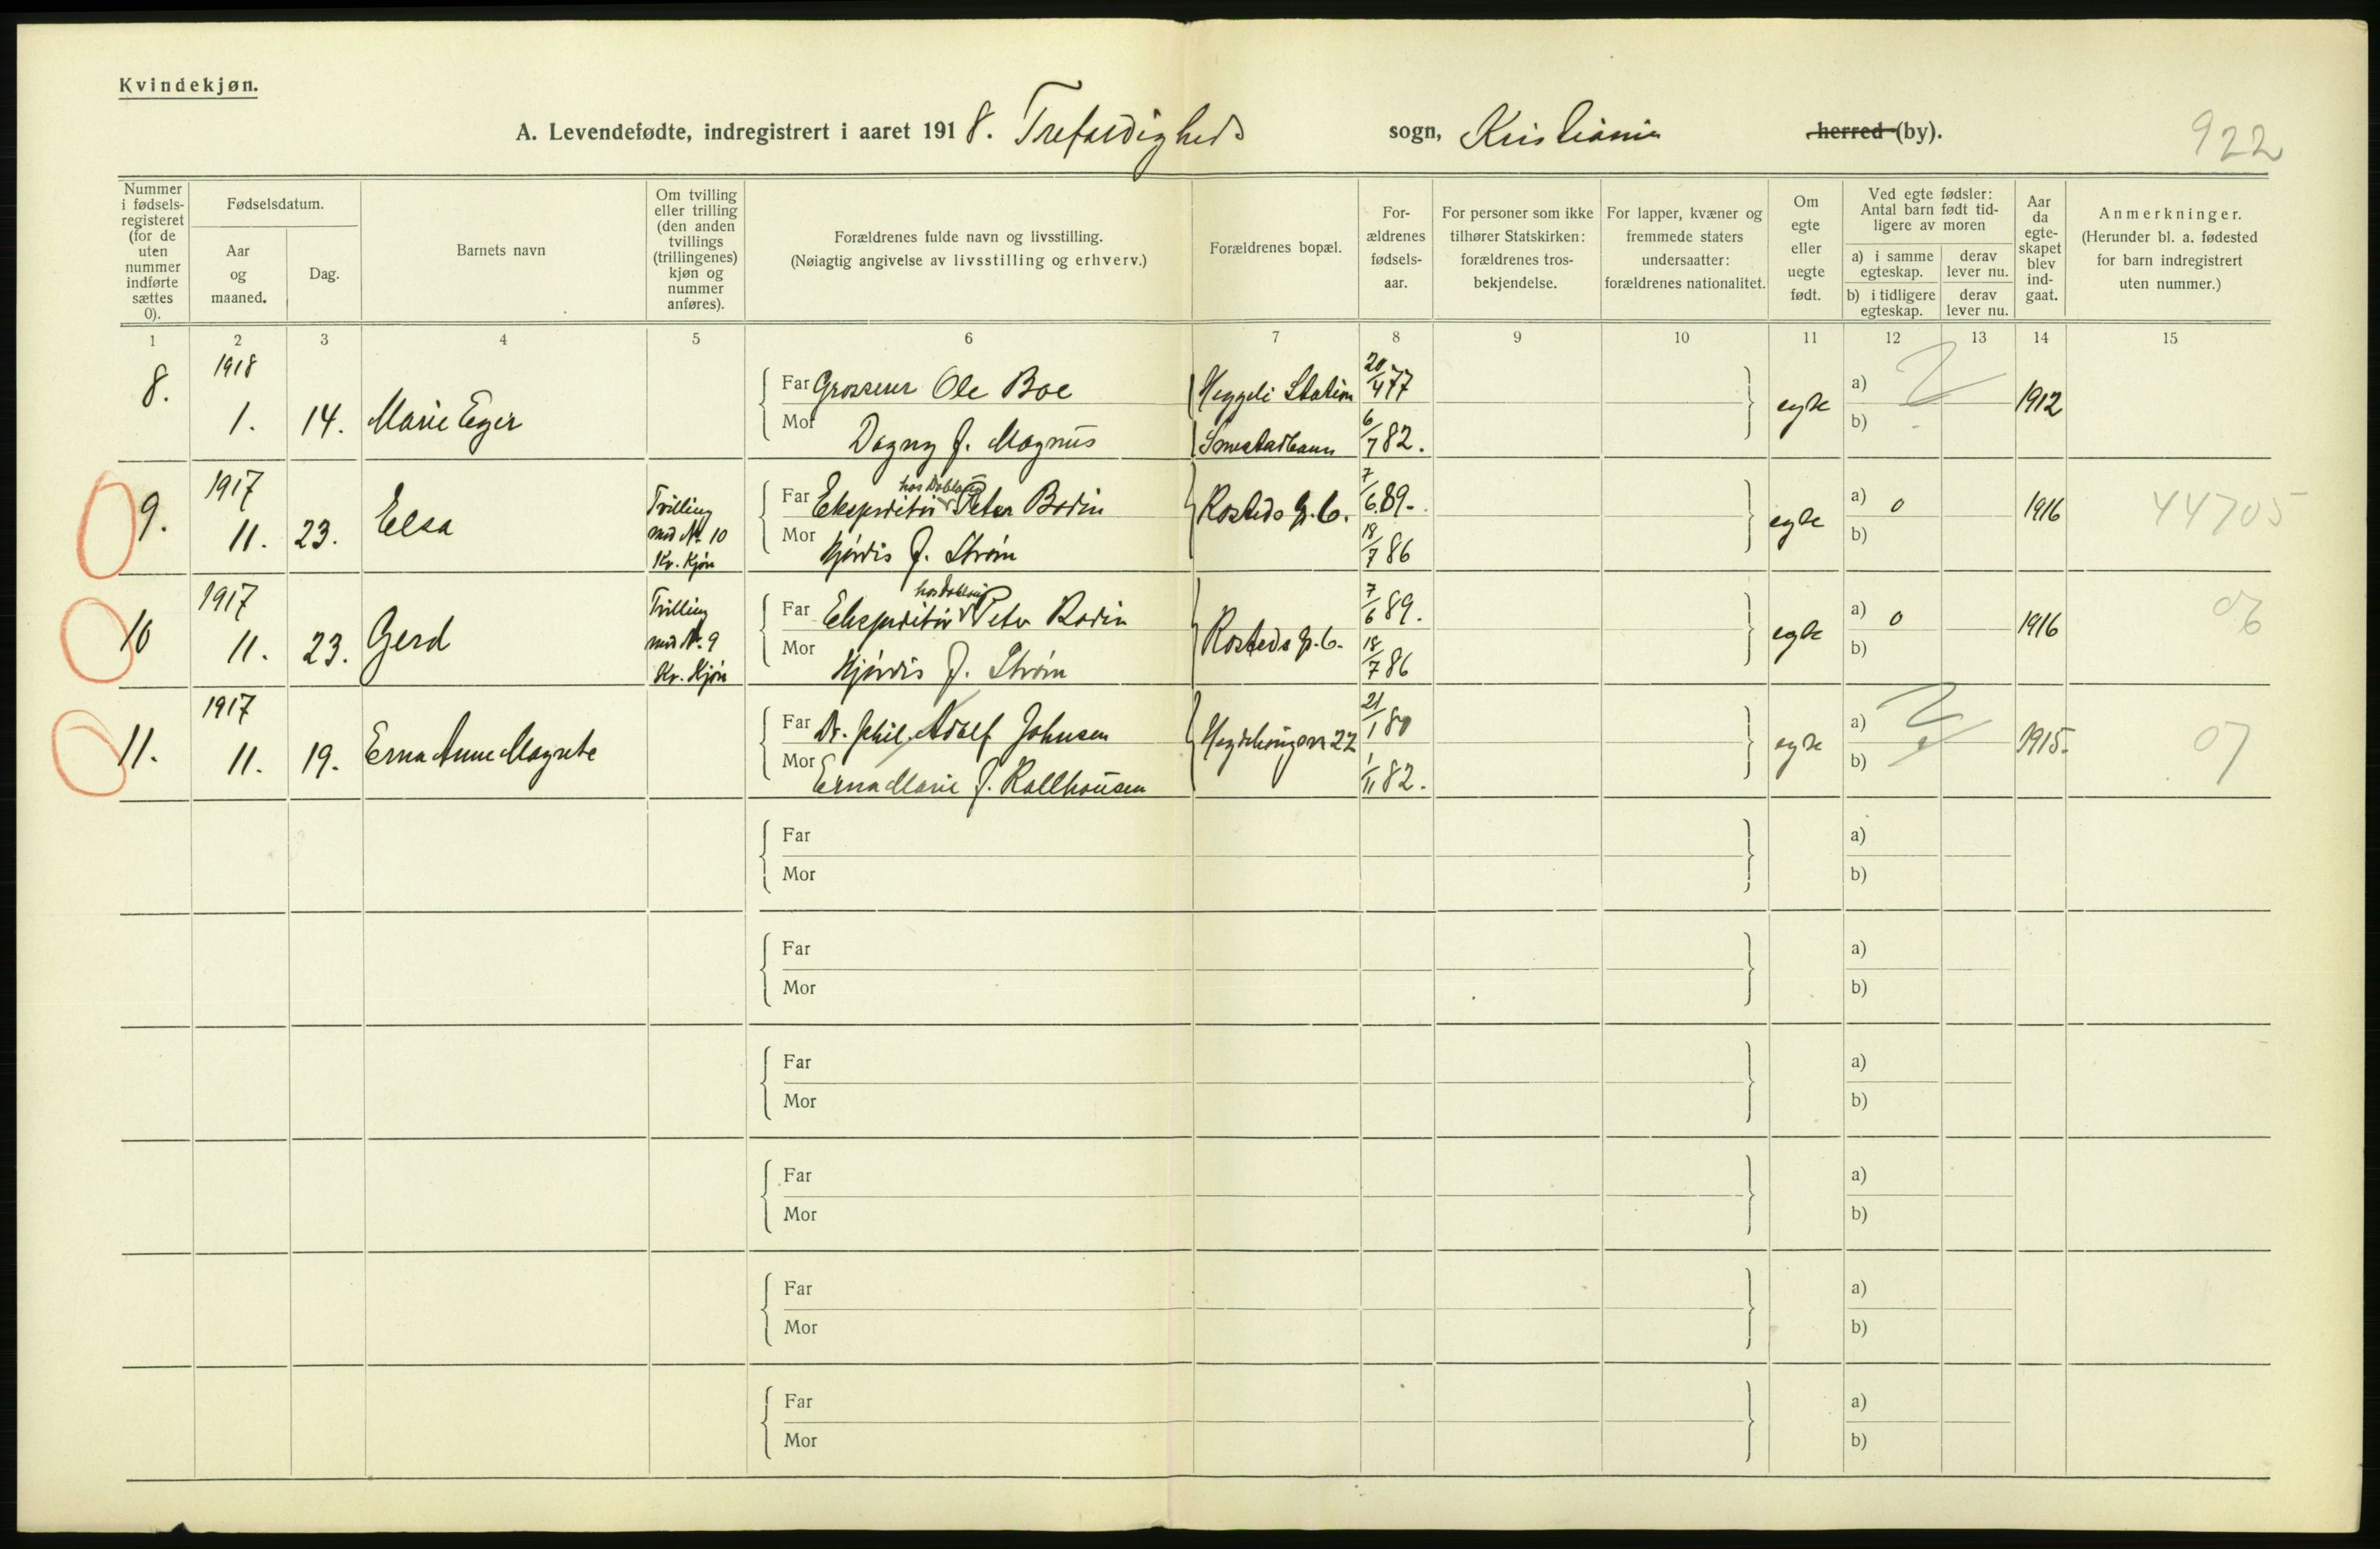 Kvindekjøn.
A. Levendefødte, indregistrert i aaret 1918. Trefoldigheds sogn, Kristiania herred (by).
922
Nummer i fødsels-registeret (for de uten nummer indførte sættes 0).
Fødselsdatum.
Aar og maaned.
Dag.
Barnets navn
Om tvilling eller trilling (den anden tvillings (trillingenes) kjøn og nummer anføres).
Forældrenes fulde navn og livsstilling.
(Nøiagtig angivelse av livsstilling og erhverv.)
Forældrenes bopæl.
For-ældrenes fødsels-aar.
For personer som ikke tilhører Statskirken: forældrenes tros-bekjendelse.
For lapper, kvæner og fremmede staters undersaatter: forældrenes nationalitet.
Om egte eller uegte født.
Ved egte fødsler: Antal barn født tid-ligere av moren
a) i samme egteskap.
derav lever nu.
b) i tidligere egteskap.
derav lever nu.
Aar da egte-skapet blev ind-gaat.
Anmerkninger.
(Herunder bl. a. fødested for barn indregistrert uten nummer.)
1 2 3 4 5 6 7 8 9 10 11 12 13 14 15
8. 1918 1. 14. Marie Eger
Far Grosserer Ole Boe
Mor Dagny f. Magnus
Heggeli Station
Smestadbanen
20/4 77
6/7 82.
egte a) 2 b) 1912
9. 1917 11. 23. Elsa
Tvilling
med Nr. 10
Kv. Kjøn
Far Ekspeditør Peter Bodin
Mor Hjørdis f. Strøm
Rosteds g. 6.
7/6 89.
18/7 86
egte a) 0 b) 1916 44705
10 1917 11. 23. Gerd
Tvilling
med Nr. 9
Kv. Kjøn
Far Ekspeditør Peter Bodin
Mor Hjørdis f. Strøm
Rosteds g. 6.
7/6 89.
18/7 86
egte a) 0 b) 1916 06
11. 1917 11. 19. Erna Anne Magrete
Far Dr. phil. Adolf Johnsen
Mor Erna Marie f. Rallhausen
21/1 80
1/11 82.
egte a) b) 1915. 07
Far
Mor
a)
b)
Far
Mor
a)
b)
Far
Mor
a)
b)
Far
Mor
a)
b)
Far
Mor
a)
b)
Far
Mor
a)
b)